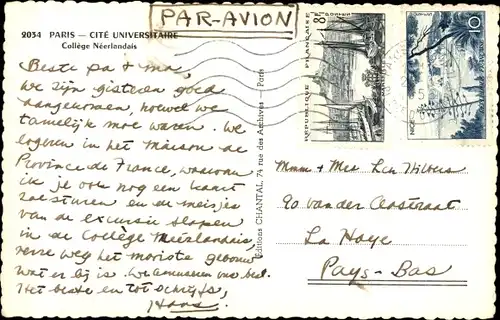 PAR-AVION
2034 PARIS — CITÉ UNIVERSITAIRE
Collège Néerlandais
Beste pa & ma,
We zijn gisteren goed
aangekomen, hoewel we
tamelijk moe waren. We
logeren in het Maison de
Province de France, waarvan
ik je ook nog een kaart
zal sturen en de meisjes
van de excursie slapen
in de Collège Néerlandais,
verre weg het mooiste gebouw
wat er bij is. We amuseren ons best.
Het beste en tot schrijfs,
Hans.
Editions CHANTAL, 74 rue des Archives — Paris
RÉPUBLIQUE FRANÇAISE
8F
10F
NICE
Mmm + Mee
90 van der
La Haye
Pays-Bas